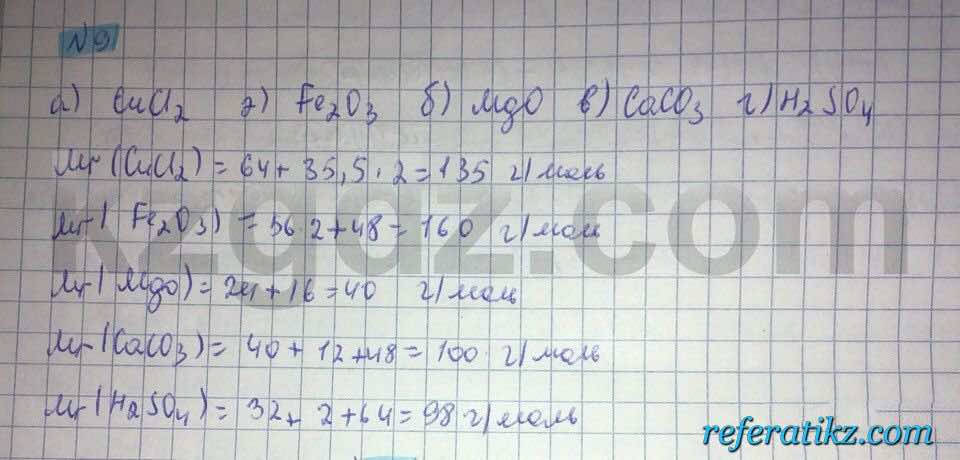 №9
а) CuCl2 д) Fe2O3 б) MgO в) CaCO3 г) H2SO4
Mr (CuCl2) = 64 + 35,5 · 2 = 135 г/моль
Mr ( Fe2O3) = 56 · 2 + 48 = 160 г/моль
Mr ( MgO) = 24 + 16 = 40 г/моль
Mr (CaCO3) = 40 + 12 + 48 = 100 г/моль
Mr (H2SO4) = 32 + 2 + 64 = 98 г/моль
kzgdz.com
referatikz.com